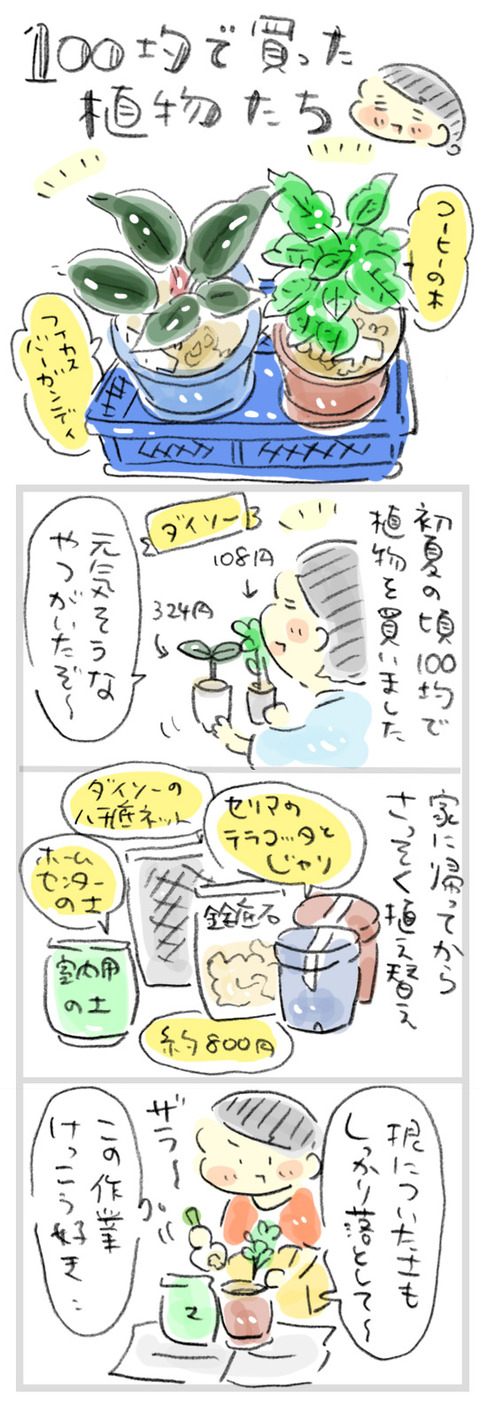 100均で買った
植物たち
コーヒーの木
フィカス
バーガンディ
初夏の頃100均で
植物を買いました
ダイソー
108円
324円
元気そうな
やつがいたぞ〜
家に帰ってから
さっそく植え替え
セリアの
テラコッタと
じゃり
ダイソーの
ハチ底ネット
ホーム
センター
の土
鉢底石
室内用
の土
約800円
根についた土も
しっかり落として〜
ザラ〜
この作業
けっこう好き…